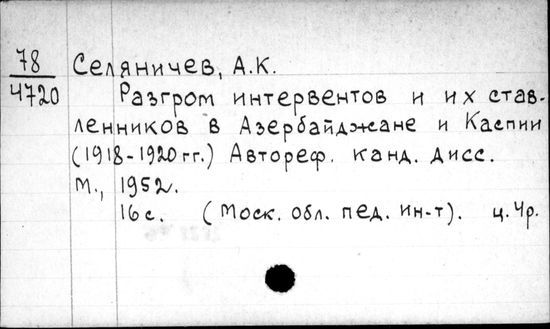 78
4720
Селяничев, А.К.
Разгром интервентов и их став-
ленников в Азербайджане и Каспии
(1918-1920 гг.) Автореф. канд. дисс.
М., 1952.
16 с. (Моск. обл. пед. ин-т). ц. 4р.